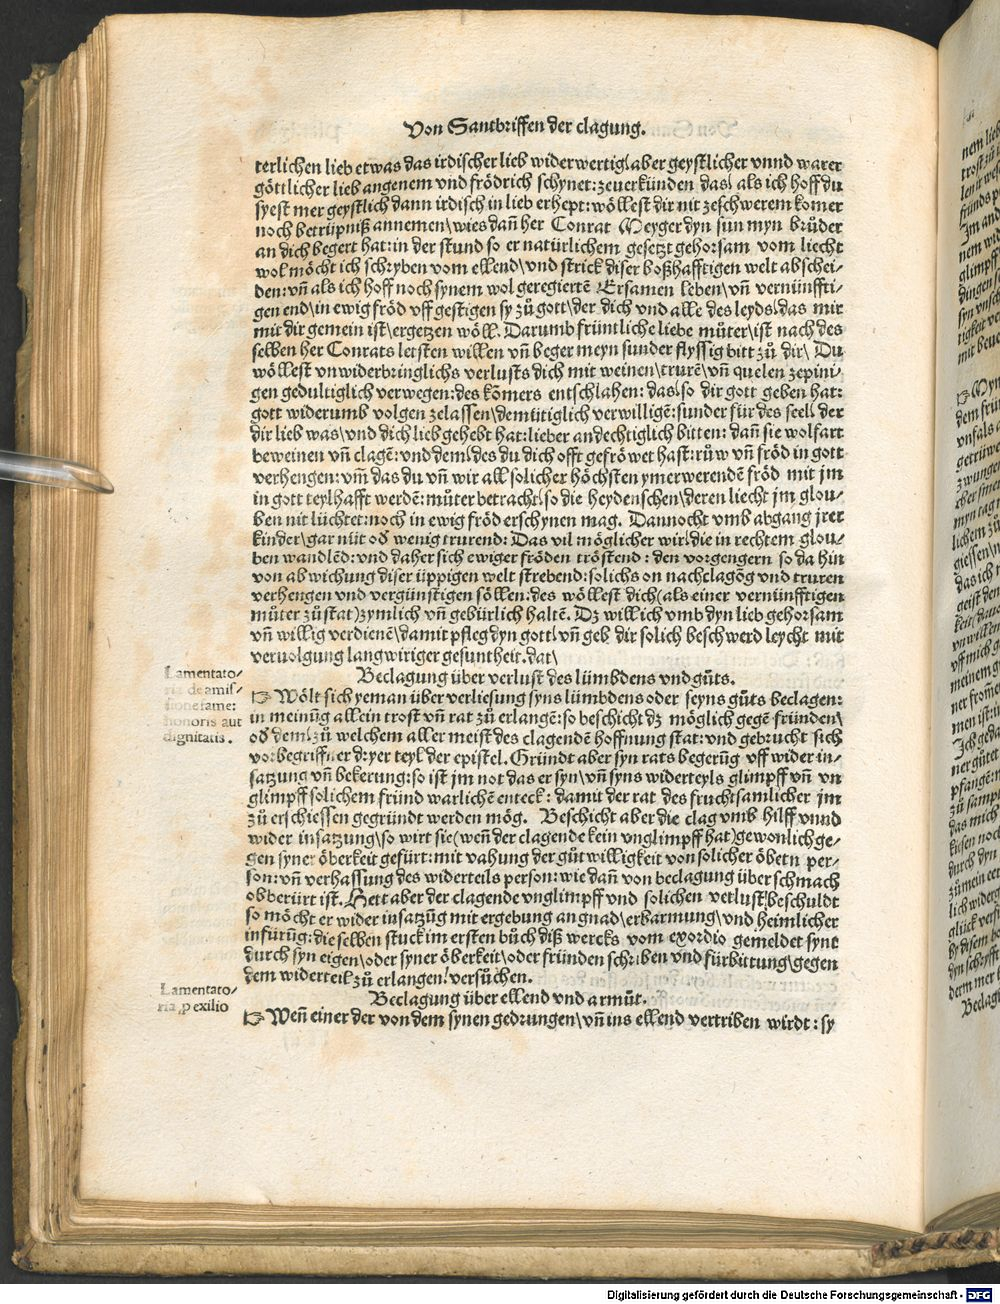 Von Santbriffen der clagung.
terlichen lieb etwas das irdischer lieb widerwertig/ aber geystlicher vnnd warer
göttlicher lieb angenem vnd frödrich schyner: zeuerkünden das/ als ich hoff du
syest mer geystlich dann irdisch in lieb erhept: wöllest dir nit zeschwerem komer
noch betrüpniß annemen/ wies dan̄ her Conrat Meyger dyn sun myn brůder
an dich begert hat: in der stund so er natürlichem gesetzt gehorsam vom liecht
wol möcht ich schryben vom ellend/ vnd strick diser boßhafftigen welt abschei-
den: vn̄ als ich hoff noch synem wol geregiertē Ersamen leben/ vn̄ vernünffti-
gen end/ in ewig fröd vff gestigen sy zů gott/ der dich vnd alle des leyds/ das mir
mit dir gemein ist/ ergetzen wöll. Darumb früntliche liebe můter/ ist nach des
selben her Conrats letsten willen vn̄ beger meyn sunder flyssig bitt zů dir/ Du
wöllest vnwiderbringlichs verlusts dich mit weinen/ trurē/ vn̄ quelen zepini-
gen gedultiglich verwegen: des kōmers entschlahen: das/ so dir gott geben hat:
gott widerumb volgen zelassen/ demütiglich verwilligē: sunder für des seel/ der
dir lieb was/ vnd dich lieb gehebt hat: lieber andechtiglich bitten: dan̄ sie wolfart
beweinen vn̄ clagē: vnd dem/ des du dich offt gefröwet hast: růw vn̄ fröd in gott
verhengen: vm̄ das du vn̄ wir all solicher höchsten ymerwerendē fröd mit jm
in gott teylhafft werdē: můter betracht/ so die heydenschen/ deren liecht jm glou-
ben nit lüchtet: noch in ewig fröd erschynen mag. Dannocht vmb abgang jrer
kinder/ gar nüt od̄ wenig trurend: Das vil möglicher wir/ die in rechtem glou-
ben wandlēd: vnd daher sich ewiger fröden tröstend: den vorgengern so da hin
von abwichung diser üppigen welt strebend: solichs on nachclagōg vnd truren
verhengen vnd vergünstigen söllen: des wöllest dich (als einer vernünfftigen
můter zůstat) zymlich vn̄ gebürlich haltē. Dz will ich vmb dyn lieb gehorsam
vn̄ willig verdienē/ damit pfleg dyn gott/ vn̄ geb dir solich beschwerd leycht mit
veruolgung langwiriger gesuntheit. dat/
Beclagung über verlust des lümbdens vnd gůts.
Lamentato-
ria de amis-
sione fame:
honoris aut
dignitatis.
☞ Wölt sich yeman über verliesung syns lümbdens oder seyns gůts beclagen:
in meinūg allein trost vn̄ rat zů erlangē: so beschicht dz möglich gegē fründen/
od̄ dem/ zů welchem aller meist des clagendē hoffnung stat: vnd gebrucht sich
vorbegriffner dryer teyl der epistel. Gründt aber syn rats begerūg vff wider in-
satzung vn̄ bekerung: so ist jm not das er syn/ vn̄ syns widerteyls glimpff vn̄ vn
glimpff solichem fründ warlichē enteck: damit der rat des fruchtsamlicher jm
zů erschiessen gegründt werden mög. Beschicht aber die clag vmb hilff vnnd
wider insatzung/ so wirt sie (wen̄ der clagende kein vnglimpff hat) gewonlich ge-
gen syner öberkeit gefürt: mit vahung der gůtwilligkeit von solicher öbern per-
son: vn̄ verhassung des widerteils person: wie dan̄ von beclagung über schmach
ob berürt ist. Hett aber der clagende vnglimpff vnd solichen verlust beschuldt
so möcht er wider insatzūg mit ergebung an gnad/ erbarmung/ vnd heimlicher
infürūg: die selben stuck im ersten bůch diß wercks vom exordio gemeldet sync
durch syn eigen/ oder syner öberkeit/ oder fründen schriben vnd fürbittung/ gegen
dem widerteil zů erlangen/ versůchen.
Beclagung über ellend vnd armůt.
Lamentato-
ria ꝓ exilio
☞ Wen̄ einer der von dem synen gedrungen/ vn̄ ins ellend vertriben wirdt: sy
Digitalisierung gefördert durch die Deutsche Forschungsgemeinschaft - DFG